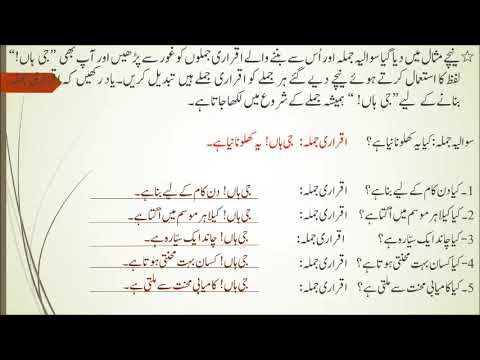 ☆ نیچے مثال میں دیا گیا سوالیہ جملہ اور اُس سے بننے والے اقراری جملوں کو غور سے پڑھیں اور آپ بھی ”جی ہاں!“
لفظ کا استعمال کرتے ہوئے نیچے دیے گئے ہر جملے کو اقراری جملے میں تبدیل کریں۔ یاد رکھیں کہ اقراری جملہ
بنانے کے لیے ”جی ہاں!“ ہمیشہ جملے کے شروع میں لکھا جاتا ہے۔
سوالیہ جملہ: کیا یہ کھلونا نیا ہے؟ اقراری جملہ: جی ہاں! یہ کھلونا نیا ہے۔
1۔ کیا دن کام کے لیے بنا ہے؟ اقراری جملہ: جی ہاں! دن کام کے لیے بنا ہے۔
2۔ کیا کیلا ہر موسم میں اُگتا ہے؟ اقراری جملہ: جی ہاں! کیلا ہر موسم میں اُگتا ہے۔
3۔ کیا چاند ایک سیّارہ ہے؟ اقراری جملہ: جی ہاں! چاند ایک سیّارہ ہے۔
4۔ کیا کسان بہت محنتی ہوتا ہے؟ اقراری جملہ: جی ہاں! کسان بہت محنتی ہوتا ہے۔
5۔ کیا کامیابی محنت سے ملتی ہے؟ اقراری جملہ: جی ہاں! کامیابی محنت سے ملتی ہے۔